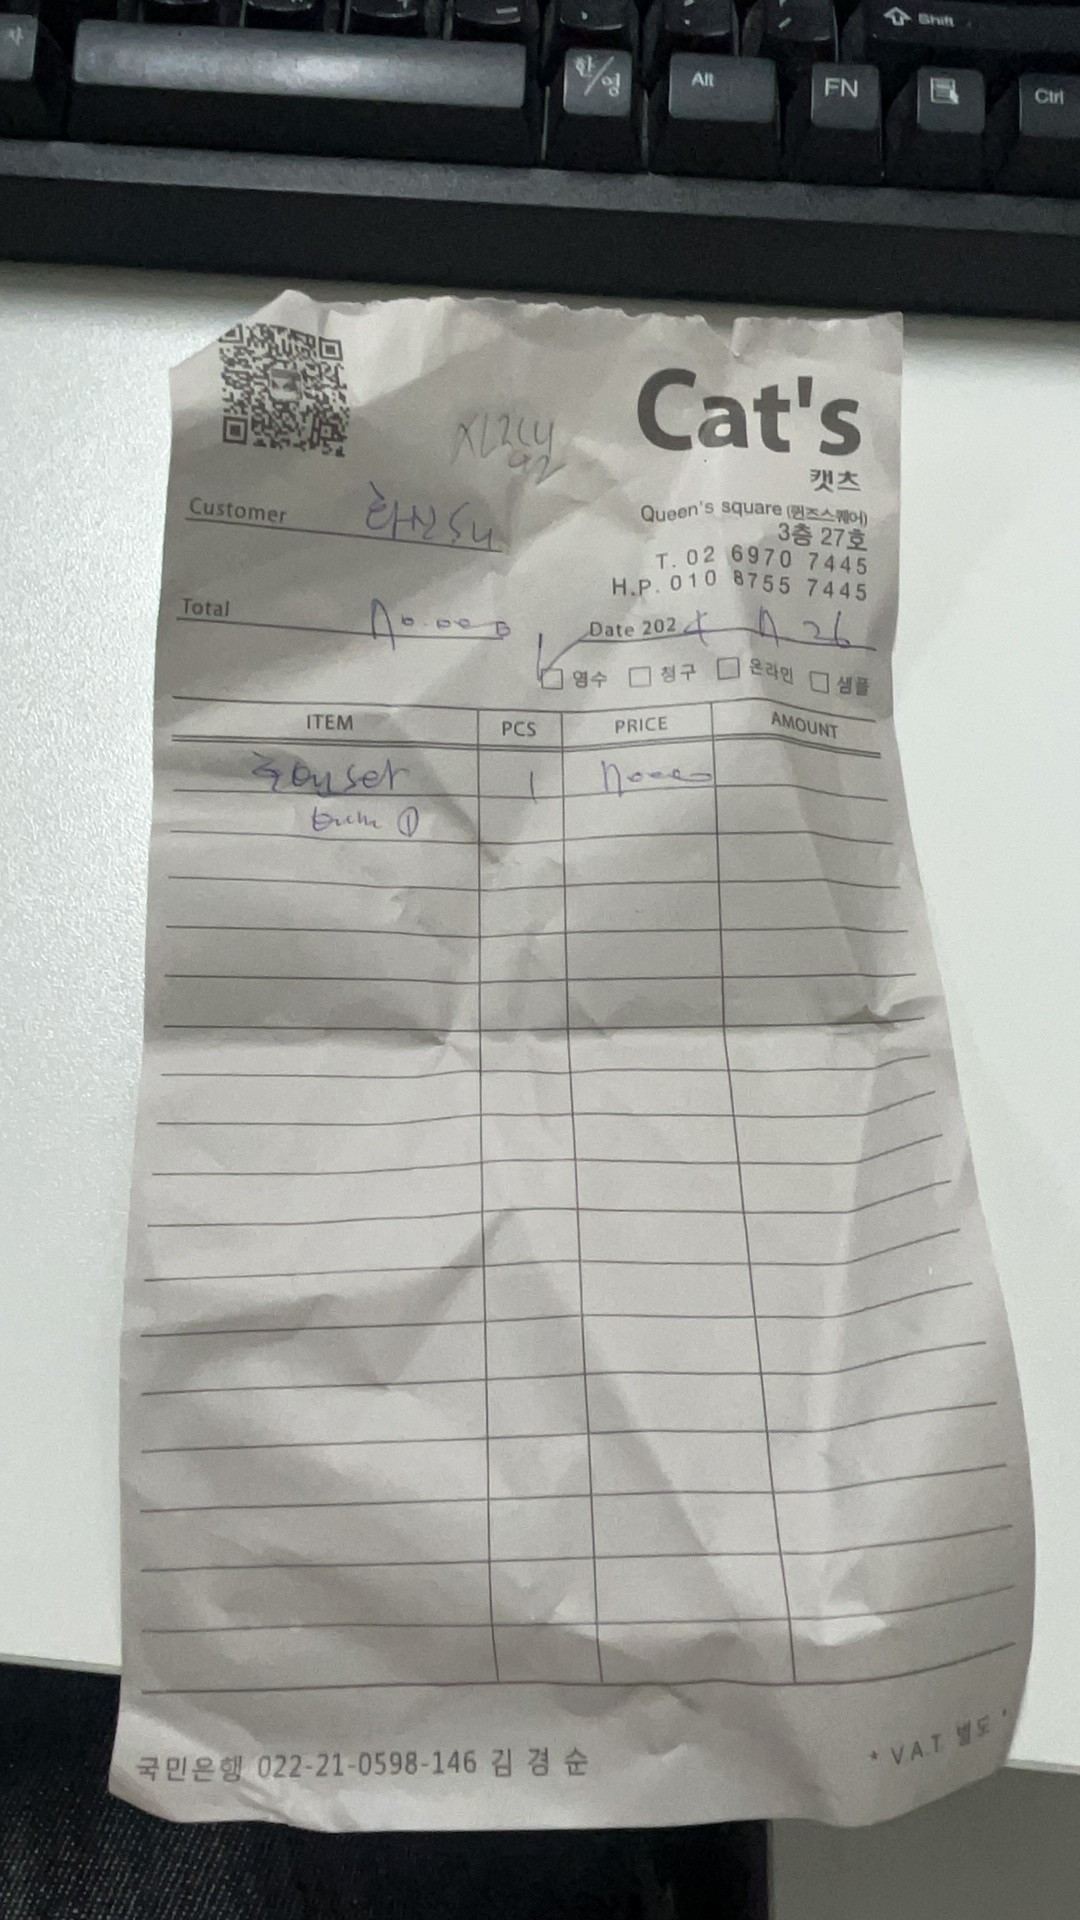 자
한/영
Alt
FN
Shift
Ctrl
Cat's
캣츠
Queen's square (퀸즈스퀘어)
3층 27호
T. 02 6970 7445
H.P. 010 8755 7445
Customer
Total
Date 2024 26
영수 청구 온라인 샘플
ITEM PCS PRICE AMOUNT
set 1
①
국민은행 022-21-0598-146 김 경 순
* V.A.T 별도 *